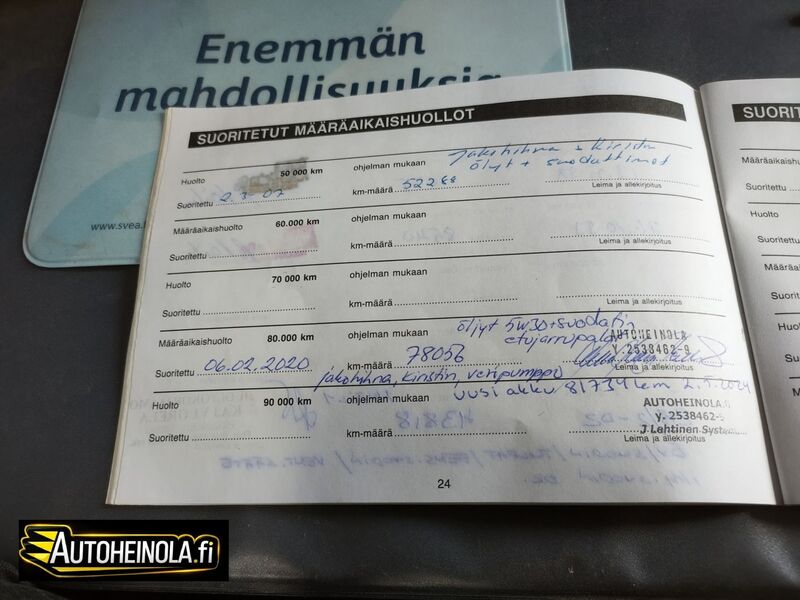 Enemmän
mahdollisuuksia
www.svea.
SUORITETUT MÄÄRÄAIKAISHUOLLOT
Huolto 50 000 km ohjelman mukaan Jakohihna + kiristin
öljyt + suodattimet
Suoritettu 2.3-07 km-määrä 52268 Leima ja allekirjoitus
Määräaikaishuolto 60.000 km ohjelman mukaan
Suoritettu km-määrä Leima ja allekirjoitus
Huolto 70 000 km ohjelman mukaan
Suoritettu km-määrä Leima ja allekirjoitus
Määräaikaishuolto 80.000 km ohjelman mukaan öljyt 5W30+suodatin
etujarrupalat
AUTOHEINOLA
Y.2538462-9
Suoritettu 06.02.2020 km-määrä 78056 Leima ja allekirjoitus
jakohihna, kiristin, vesipumppu
uusi akku 81734km 2.9.2024
Huolto 90 000 km ohjelman mukaan
AUTOHEINOLA.fi
y. 2538462-9
J Lehtinen
Suoritettu km-määrä Leima ja allekirjoitus
24
SUORIT
Huolto
Suoritettu
Määräa
Suoritettu
Huolto
Suoritet
Määrä
Suorit
Huolt
Suor
AUTOHEINOLA.fi